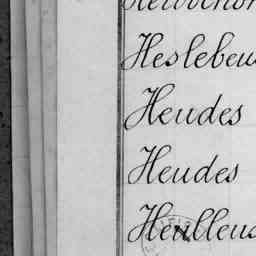 Heslebeu
Heudes
Heudes
Heulleu